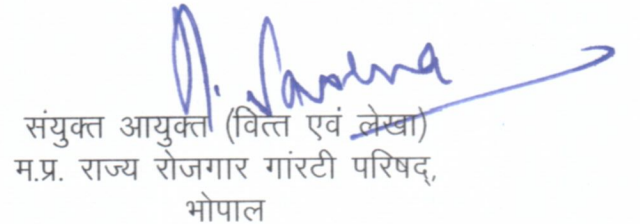 संयुक्त आयुक्त (वित्त एवं लेखा)
म.प्र. राज्य रोजगार गांरटी परिषद्,
भोपाल